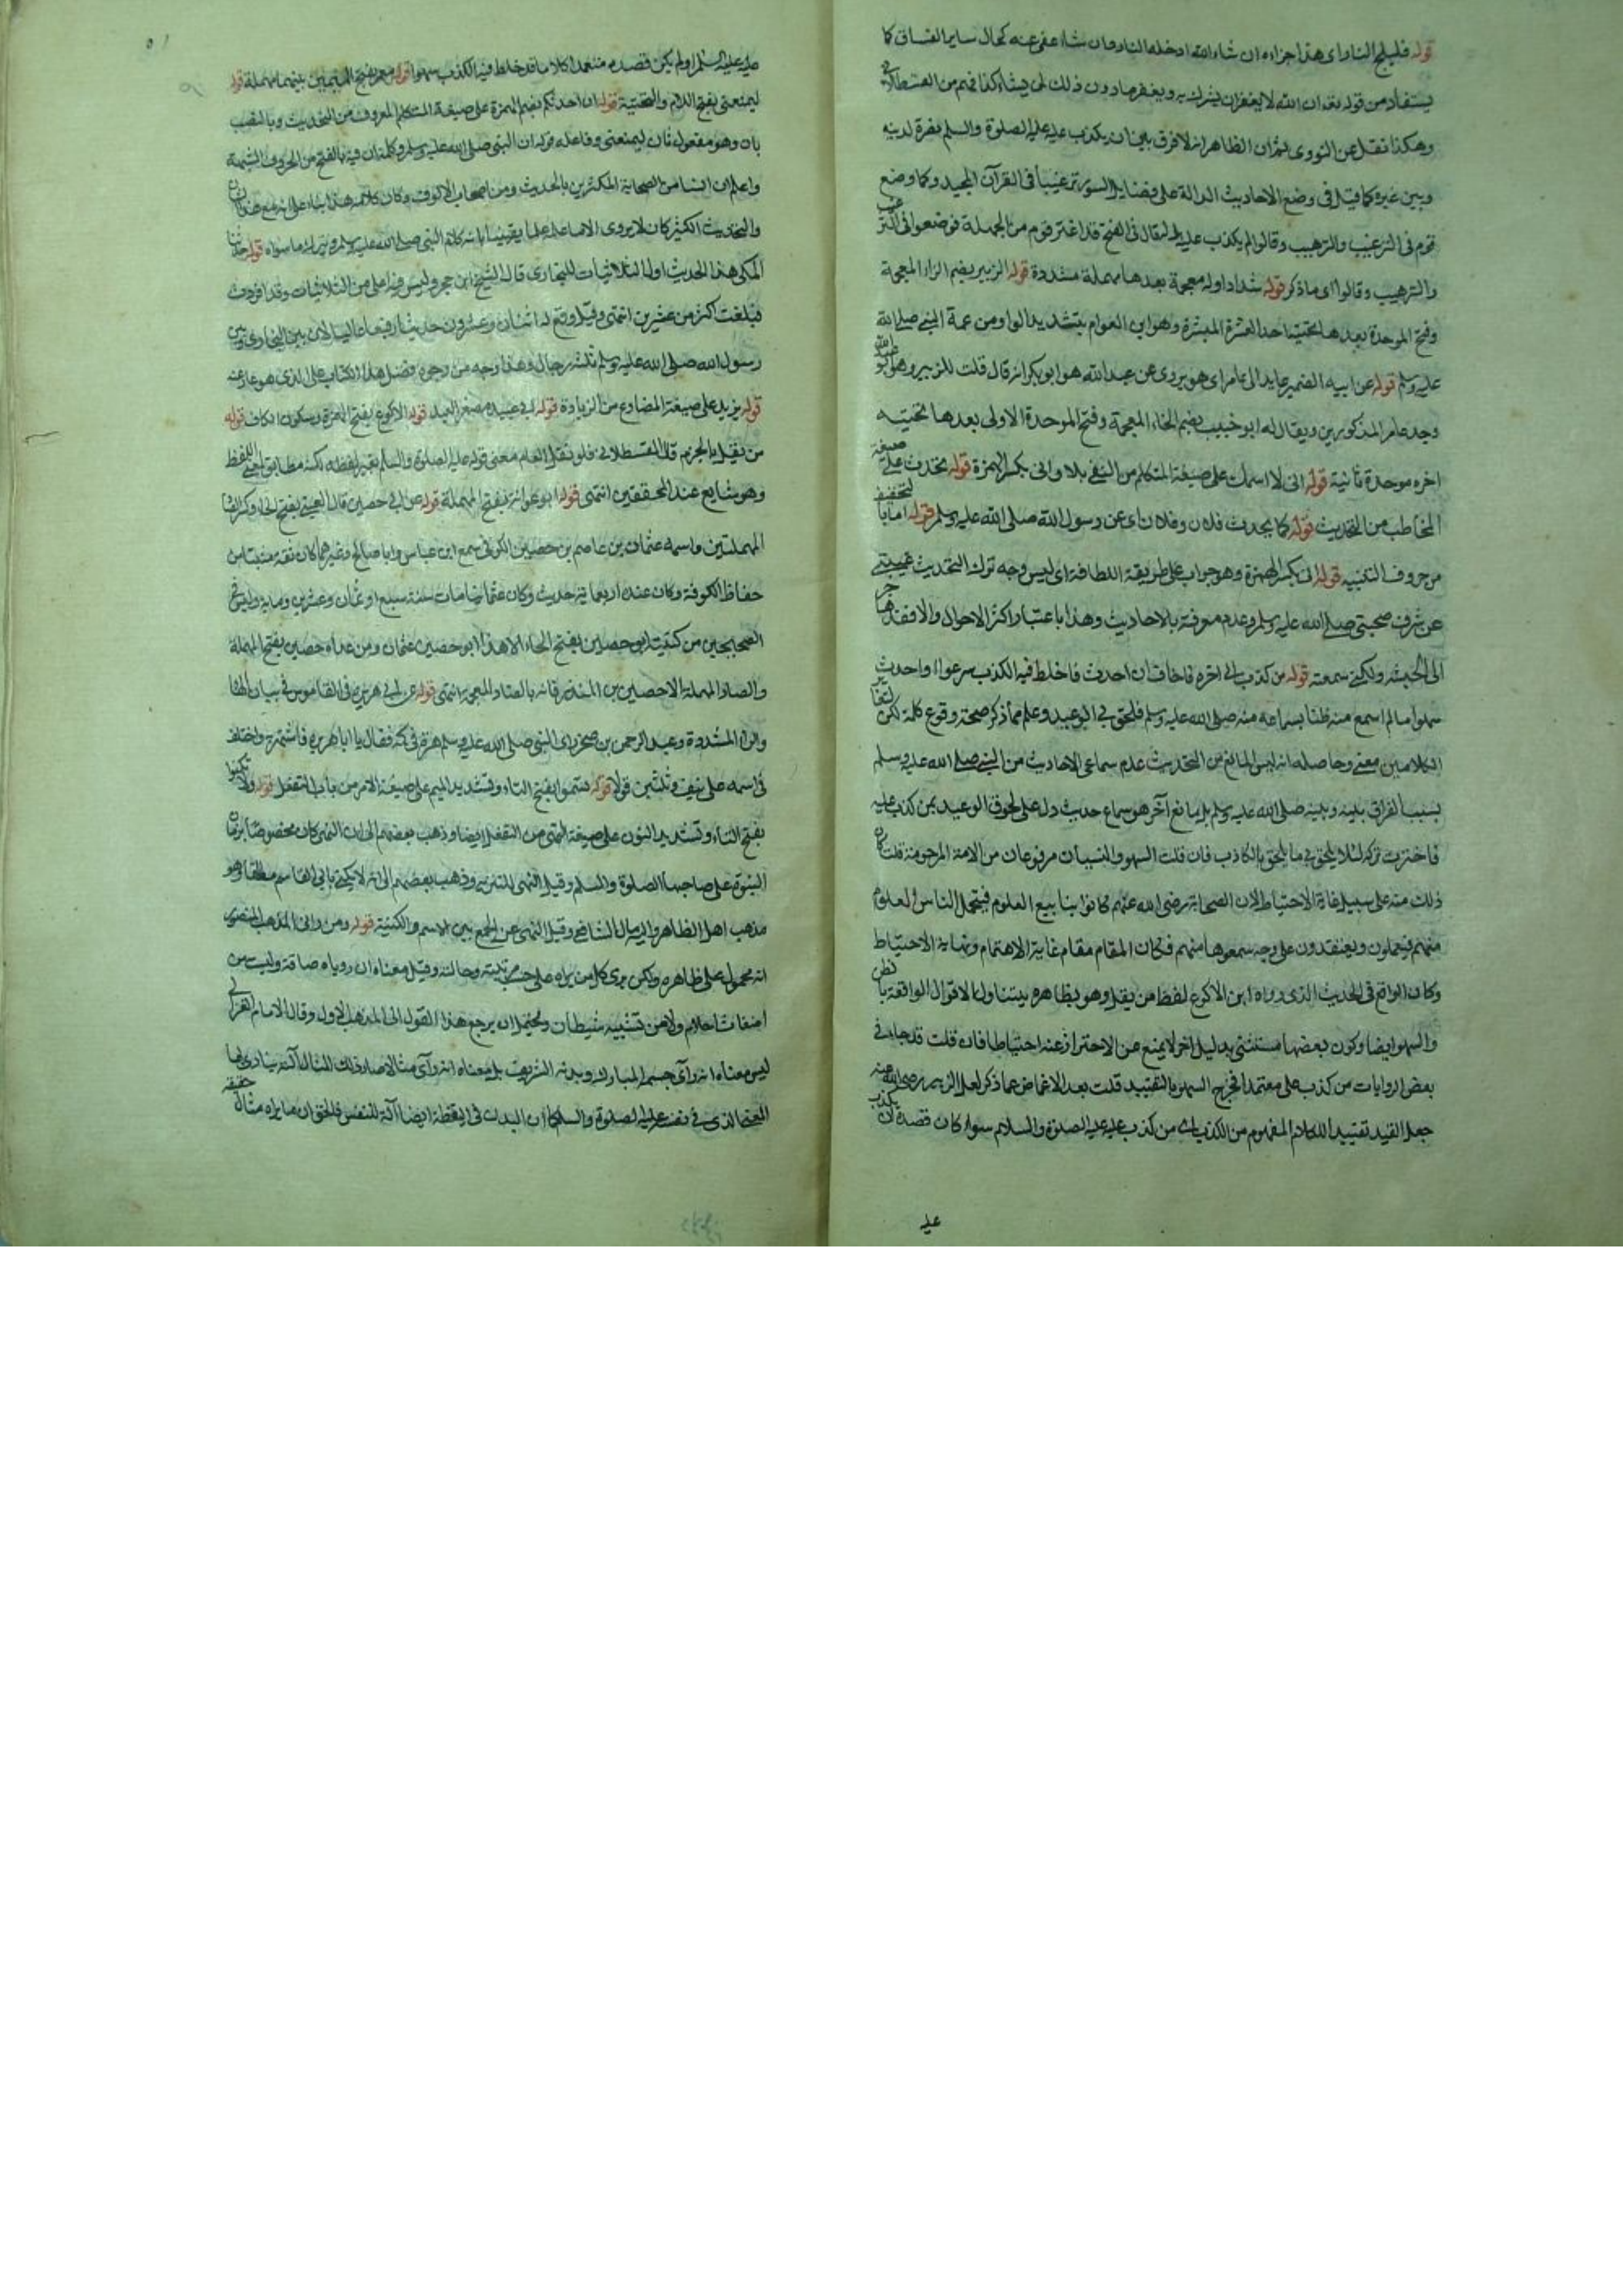 قوله فليلج النار اى هذا جزاءه ان شاء الله ادخله النار وان شاء عفى عنه كحال ساير الفساق كما
يستفاد من قوله تعه ان الله لا يغفر ان يشرك به ويغفر ما دون ذلك لمن يشاء كذا فهم من القسطلانى
وهكذا نقل عن النووى ثم ان الظاهر انه لا فرق بين ان يكذب عليه عليه الصلوة والسلم بضرة لدينه
وبين غيره كما قيل فى وضع الاحاديث الدالة على فضايل السور ترغيبا فى القرآن المجيد وكما وضع
قوم فى الترغيب والترهيب وقالوا لم يكذب عليه بل قال فى الفتح قد اغتر قوم من الجهلة فوضعوا فى الترغيب
والترهيب وقالوا اى ما ذكر قوله شداد اوله معجمة بعدها مهملة مشددة قوله الزبير بضم الزاء المعجمة
وفتح الموحدة بعدها تحتية احد العشرة المبشرة وهو ابن العوام بتشديد الواو ومن عمة النبى صلى الله
عليه وسلم قوله عن ابيه الضمير عايد الى عامر اى هو يروى عن عبد الله هو ابو بكر انه قال قلت للزبير وهو ابو عبد الله
وجد عامر المذكورين ويقال له ابو خبيب بضم الخاء المعجمة وفتح الموحدة الاولى بعدها تحتيه
اخره موحدة ثانية قوله انى لا اسمعك على صيغة المتكلم من النفى بلا وانى بكسر الهمزة قوله تحدث على صيغة
المخاطب من التحديث قوله كما يحدث فلان وفلان اى عن رسول الله صلى الله عليه وسلم قوله اما بالتخفيف
من حروف التنبيه قوله انى بكسر الهمزة وهو جواب على طريقة اللطافة اى ليس وجه ترك التحديث غيبتى
عن شرف صحبتى صلى الله عليه وسلم وعدم معرفة بالاحاديث وهذا باعتبار اكثر الاحوال والا فقد هاجر
الى الحبشه ولكنى سمعته قوله من كذب الى اخره فاخاف ان احدث فاخلط فيه الكذب سرعوا او احدث
سهوا ما لم اسمع منه ظنا بسماعه منه صلى الله عليه وسلم فلحق بى الوعيد وعلم مما ذكر صحة وقوع كلمة لكن
الكلامين معنى وحاصله انه ليس المانع من التحديث عدم سماعى الاحاديث من النبى صلى الله عليه وسلم
بسبب الفراق بينه وبينه صلى الله عليه وسلم بل مانع آخر هو سماع حديث دل على لحوق الوعيد بمن كذب عليه
فاخترت تركه لئلا يلحق بى ما يلحق بالكاذب فان قلت السهو والنسيان مرفوعان من الامة المرحومة قلت كان
ذلك منه على سبيل غاية الاحتياط لان الصحابة رضى الله عنهم كانوا ينابيع العلوم فيتحمل الناس العلوم
منهم فيعملون ويعتقدون على وجه سمعوها منهم فكان المقام مقام غاية الاهتمام ونهاية الاحتياط
وكان الواقع فى الحديث الذى رواه ابن الاكوع لفظ من يقل وهو بظاهره يتناول الاقوال الواقعة بالخطاء
والسهو ايضا وكون بعضها مستثنى بدليل اخر لا يمنع من الاحتراز عنه احتياطا فان قلت قد جاء فى
بعض الروايات من كذب على متعمدا فخرج السهو بالتقييد قلت بعد الاغماض عما ذكر لعل الزبير رضى الله عنه
جعل القيد تقييد الكلام المفهوم من الكذب اى من كذب عليه عليه الصلوة والسلام سواء كان قصده ان يكذب
عليه
عليه عليه السلم او لم يكن قصده متعمدا كلاما قد خلط فيه الكذب سهوا قوله معمر بفتح الميمين بينهما مهملة قوله
ليمنعنى بفتح اللام والتحتية قوله ان احدثكم بضم الهمزة على صيغة المتكلم المعروف من التحديث وبالنصب
بان وهو مفعول ثان ليمنعنى وفاعله قوله ان النبى صلى الله عليه وسلم وكلمة ان فيه بالفتح من الحروف المشبهة
واعلم ان انسا من الصحابة المكثرين بالحديث ومن اصحاب الالوف وكان كلامه هذا بناء على انه مع هذا كان
والتحديث الكثير كان لا يروى الا ما علم علما يقينيا بانه كلام النبى صلى الله عليه وسلم ويترك ما سواه قوله حدثنا
المكى هذا الحديث اول الثلاثيات للبخارى قال الشيخ ابن حجر وليس فيه اعلى من الثلاثيات وقد افردت
فبلغت اكثر من عشرين انتهى وقيل وقع له اثنان وعشرون حديثا رفيعا على السلالات بين البخارى وبين
رسول الله صلى الله عليه وسلم ثلثة رجال وهذا وجه من وجوه فضل هذا الكتاب على الذى هو عار عنه
قوله يزيد على صيغة المضارع من الزيادة قوله ابى عبيد مصغر العبد قوله الاكوع بفتح الهمزة وسكون الكاف قوله
من يقل بالجزم قال القسطلانى فلو نقل العالم معنى قوله عليه الصلوة والسلم بغير لفظه لكنه مطابق لمعنى اللفظ
وهو شايع عند المحققين انتهى قوله ابو عوانة بفتح المهملة قوله عن ابى حصين قال العينى بفتح الحاء وكسر الصاد
المهملتين واسمه عثمان بن عاصم بن حصين الكوفى سمع ابن عباس وابا صالح وغيرهما كان ثقة ثبتا من
حفاظ الكوفة وكان عنده اربعماية حديث وكان عثمانيا مات سنة سبع او ثمان وعشرين وماية وليس فى
الصحيحين من كنيته ابو حصين بفتح الحاء الا هذا ابو حصين عثمان ومن عداه حصين بفتح المهملة
والصاد المهملة الا حصين بن المنذر فانه بالضاد المعجمة انتهى قوله عن ابى هريرة فى القاموس فى بيان الهاء
والراء المشددة وعبد الرحمن بن صخر راى النبى صلى الله عليه وسلم هرة فى كمه فقال يا ابا هريرة فاشتهر به واختلف
فى اسمه على نيف وثلثين قولا قوله تسموا بفتح التاء وتشديد الميم على صيغة الامر من باب التفعل قوله ولا تكنوا
بفتح التاء وتشديد النون على صيغة النهى من التفعل ايضا وذهب بعضهم الى ان النهى كان مخصوصا بزمان
النبوة على صاحبها الصلوة والسلم وقيل النهى للتنزيه وذهب بعضهم الى انه لا يكنى بابى القاسم مطلقا وهو
مذهب اهل الظاهر واليه مال الشافعى وقيل النهى عن الجمع بين الاسم والكنية قوله ومن رانى المذهب المنصور
انه محمول على ظاهره ولكن يرى كل من يراه على حسب مرتبته وحالته وقيل معناه ان روياه صادقة وليست من
اضغاث احلام ولا من تشبيه شيطان ويحتمل ان يرجع هذا القول الى المذهب الاول وقال الامام الغزالى
ليس معناه انه رآى جسم المبارك وبدنه الشريف بل معناه انه رآى مثالا صار ذلك المثال آلة يتادى بها
المعنى الذى فى نفسه عليه الصلوة والسلم كما ان البدن فى اليقظة ايضا آلة للنفس فالحق ان ما يراه مثال حقيقة